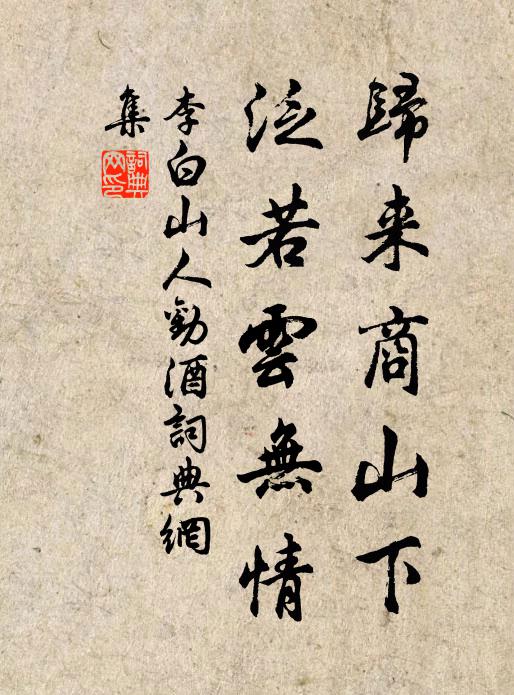 歸来商山下
泛若雲無情
李白山人勸酒詞典網
集
詞典
网印